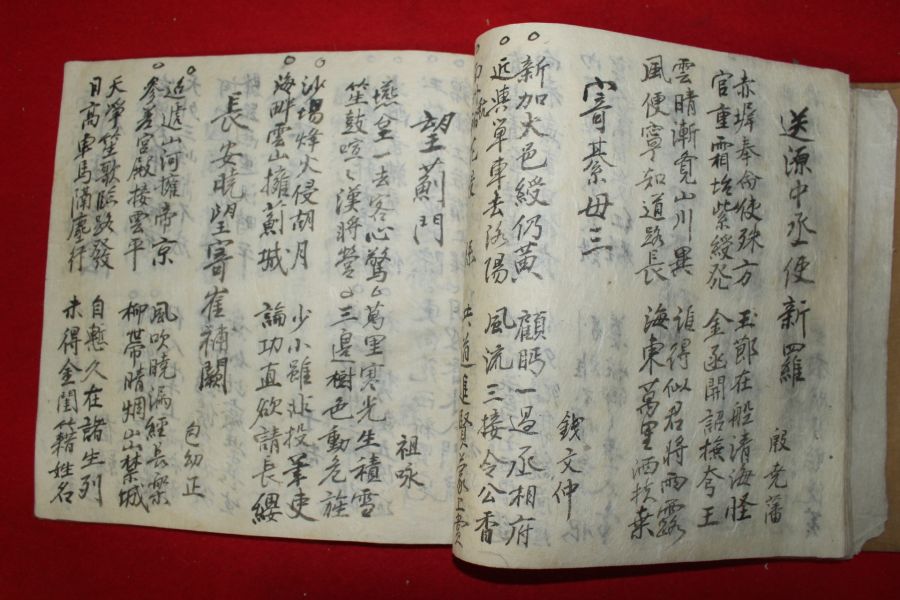 送源中丞使新羅
殷堯藩
赤墀奉命使殊方 玉節在船清海怪
官重霜坮紫綬光 金函開詔撫夸王
雲晴漸覓山川異 誰得似君將雨露
風便寧知道路長 海東萬里洒扶桒
寄綦毋三
錢文仲
新加大邑綬仍黃 顧眄一過丞相府
近與單車去洛陽 風流三接令公香
共道進賢蒙上賞
望薊門
祖咏
燕坮一去客心驚 萬里寒光生積雪
笙鼓喧〻漢將營 三邊樹色動危旌
沙場烽火侵胡月 少小雖非投筆吏
海畔雲山擁薊城 論功直欲請長纓
長安曉望寄崔補闕
包幼正
迢遞山河擁帝京 風吹曉漏經長樂
參差宮殿接雲平 柳帶晴烟出禁城
天淨笙歌臨路發 自慙久在諸生列
日高車馬滿塵行 未得金閨籍姓名